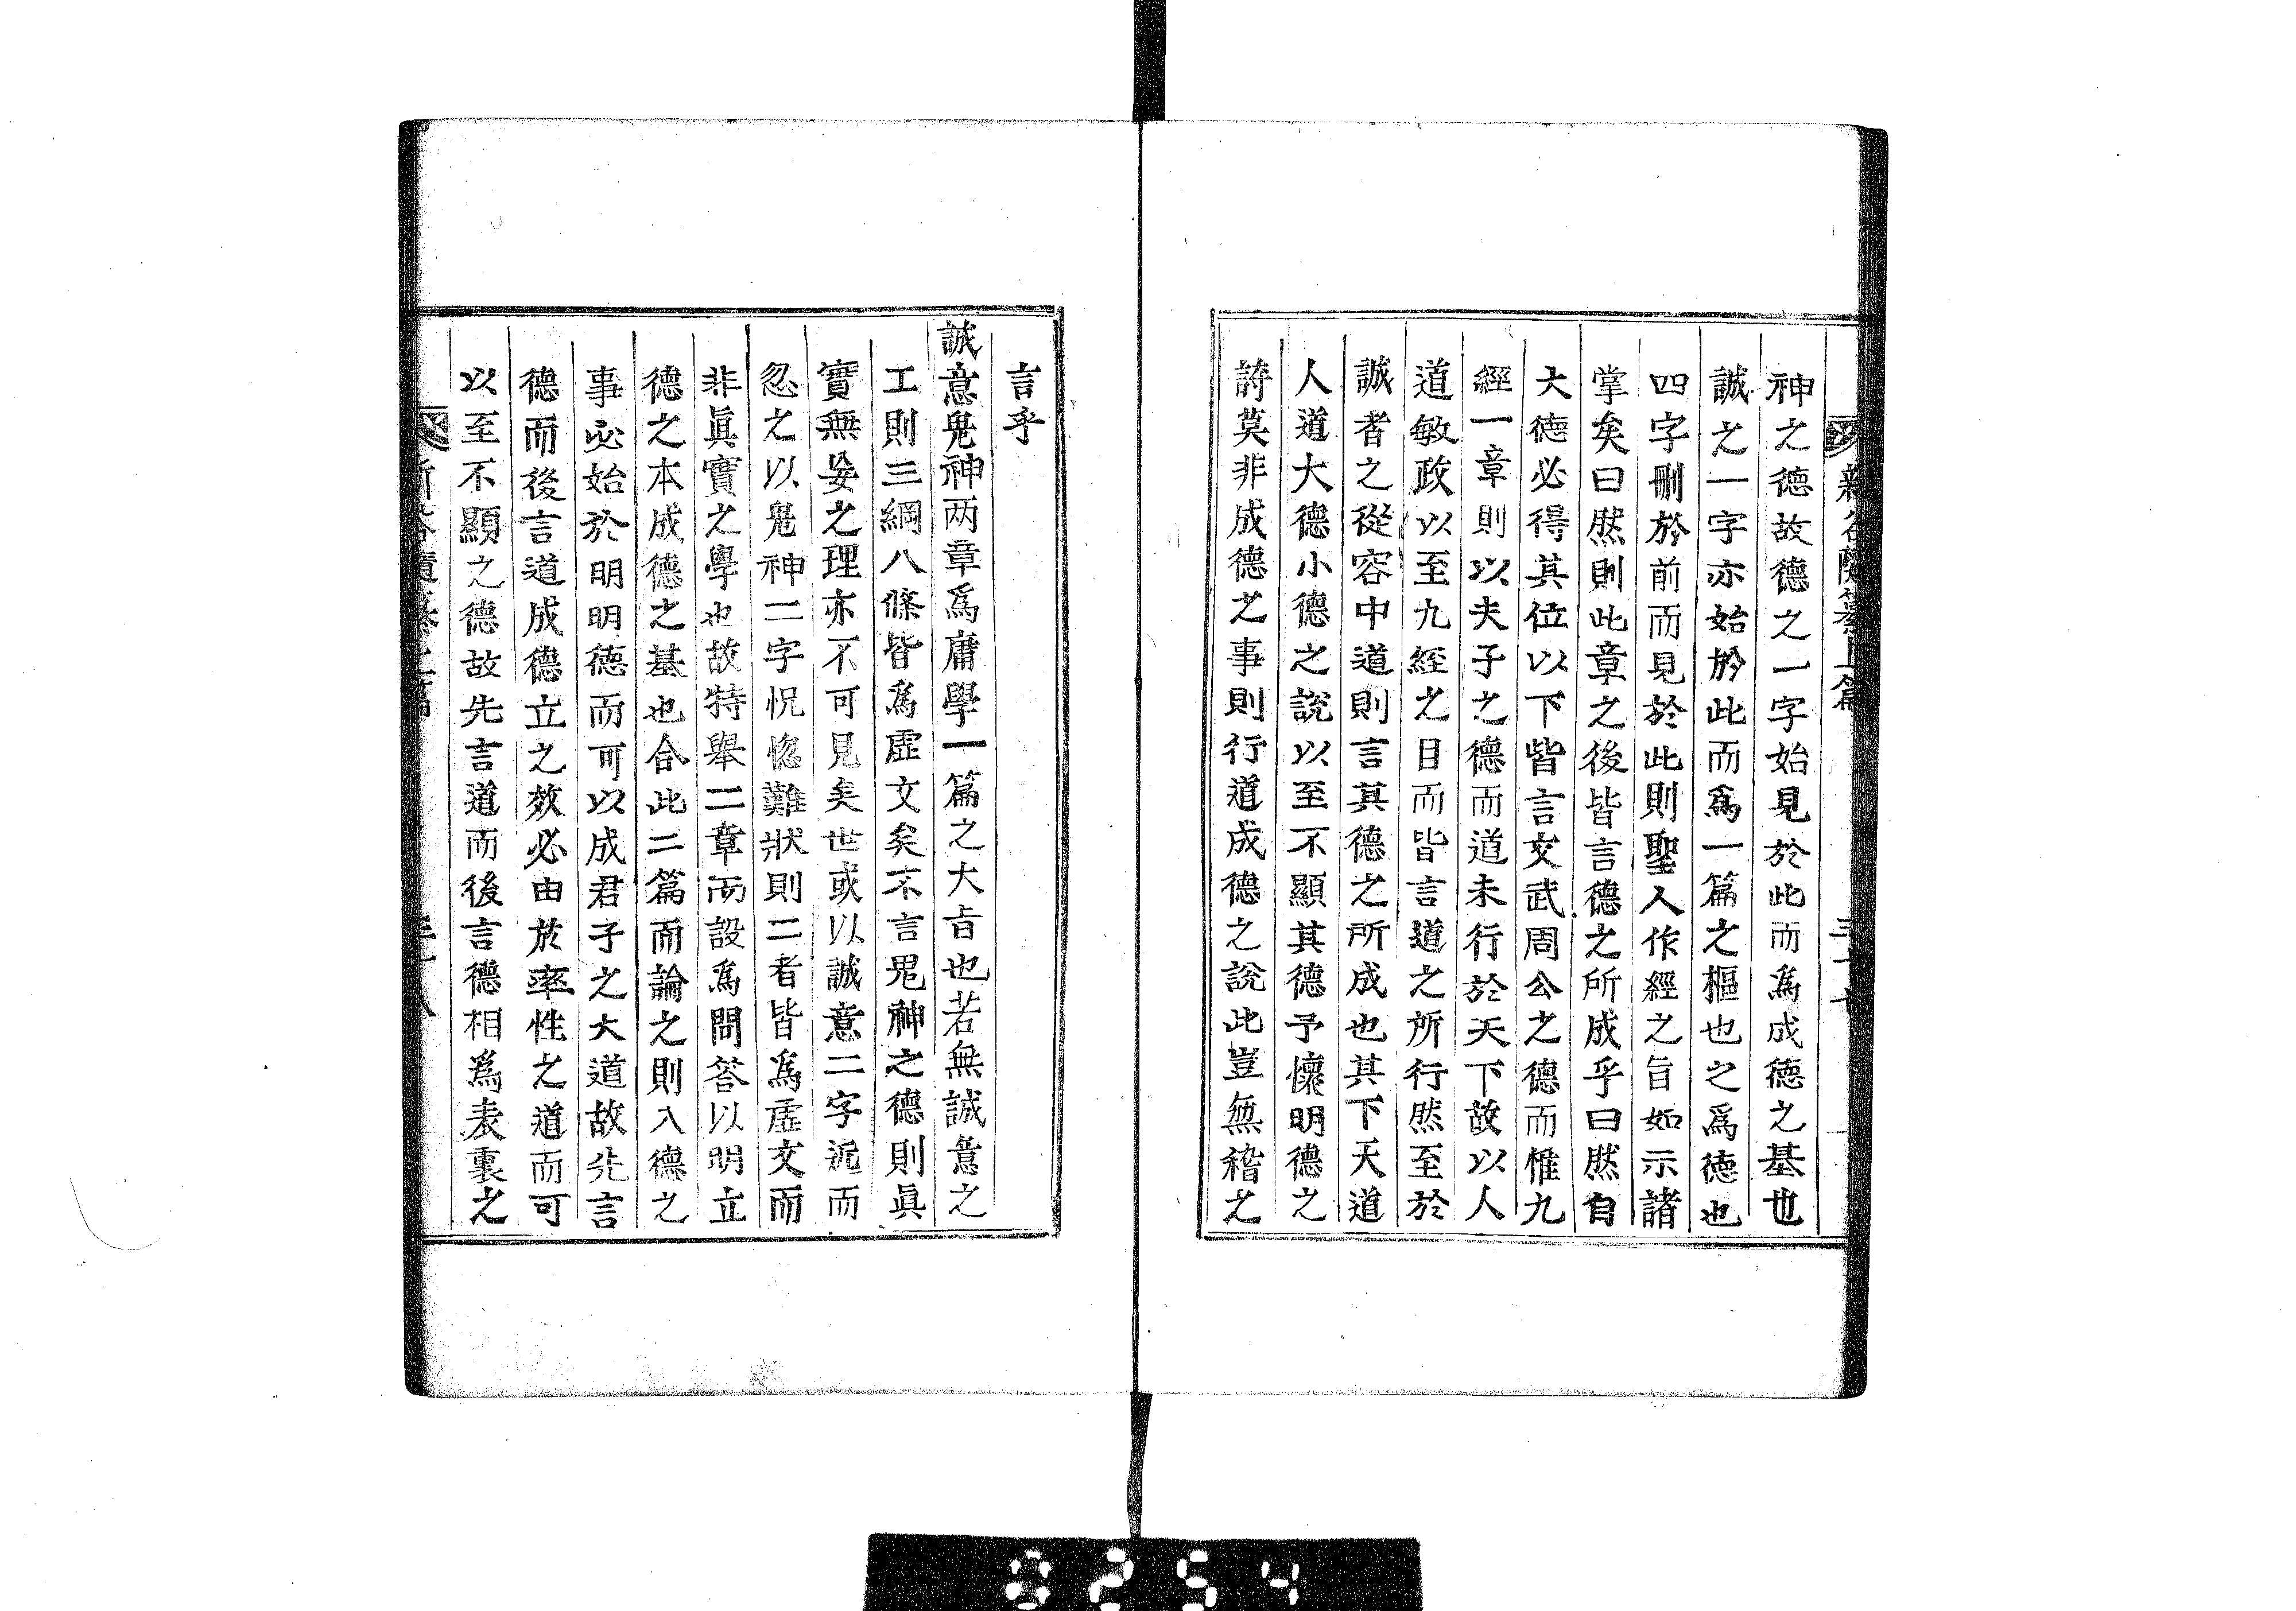 神之德故德之一字始見於此而爲成德之基也
誠之一字亦始於此而爲一篇之樞也之爲德也
四字刪於前而見於此則聖人作經之旨如示諸
掌矣曰然則此章之後皆言德之所成乎曰然自
大德必得其位以下皆言文武周公之德而惟九
經一章則以夫子之德而道未行於天下故以人
道敏政以至九經之目而皆言道之所行然至於
誠者之從容中道則言其德之所成也其下天道
人道大德小德之說以至不顯其德予懷明德之
詩莫非成德之事則行道成德之說此豈無稽之
言乎
誠意鬼神两章爲庸學一篇之大旨也若無誠意之
工則三綱八條皆爲虛文矣不言鬼神之德則眞
實無妄之理亦不可見矣世或以誠意二字泥而
忽之以鬼神二字怳惚難狀則二者皆爲虛文而
非眞實之學也故特舉二章而設爲問答以明立
德之本成德之基也合此二篇而論之則入德之
事必始於明明德而可以成君子之大道故先言
德而後言道成德立之效必由於率性之道而可
以至不顯之德故先言道而後言德相爲表裏之
0254